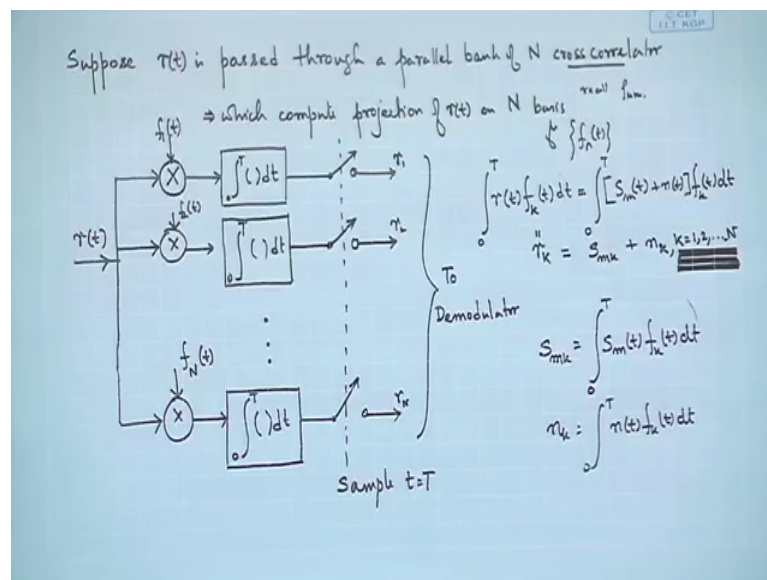 © CET
I.I.T. KGP
Suppose r(t) is passed through a parallel bank of N cross correlator
⇒ which compute projection of r(t) on N basis
fun.
{fₙ(t)}
f₁(t)
∫₀ᵀ ( ) dt
r₁
f₂(t)
∫₀ᵀ ( ) dt
r₂
r(t)
f_N(t)
∫₀ᵀ ( ) dt
r_N
Sample t=T
To
Demodulator
∫₀ᵀ r(t) f_k(t) dt = ∫₀ᵀ [S_m(t) + n(t)] f_k(t) dt
r_k = S_mk + n_k, K=1,2,...N
S_mk = ∫₀ᵀ S_m(t) f_k(t) dt
n_k = ∫₀ᵀ n(t) f_k(t) dt